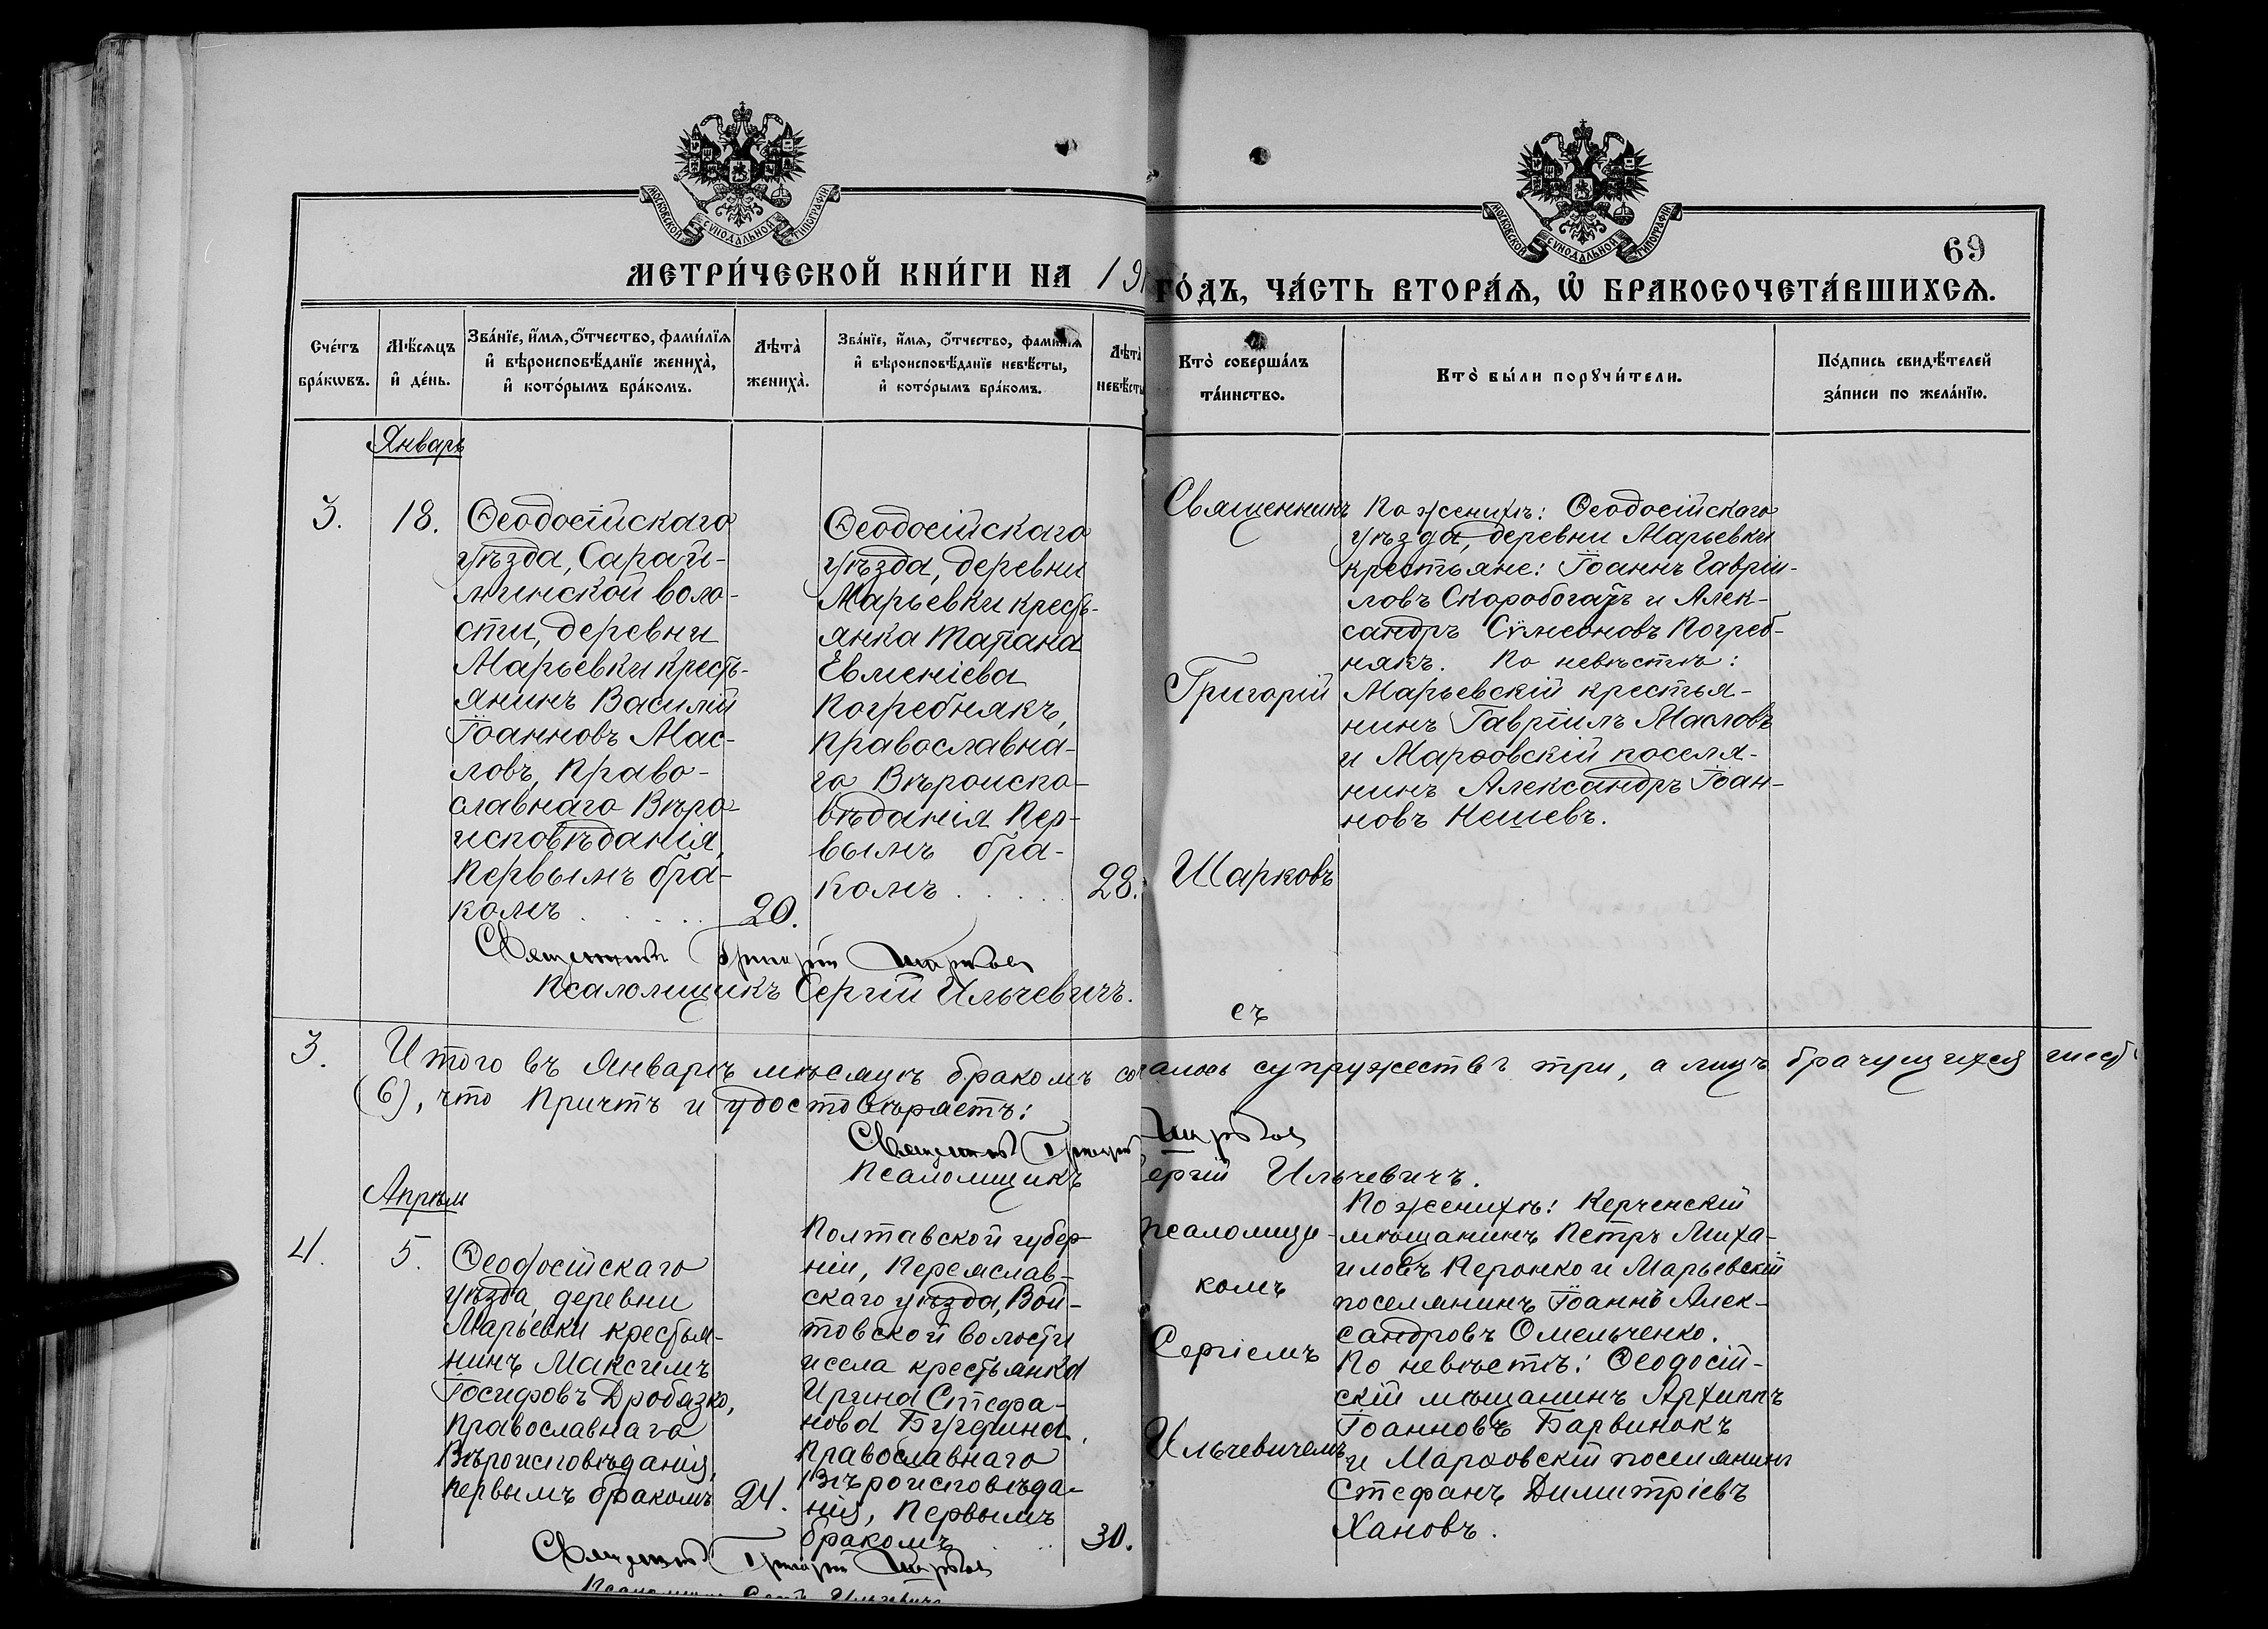 МОСКОВСКОЙ СѴНОДАЛЬНОЙ ТИПОГРАФІИ
МОСКОВСКОЙ СѴНОДАЛЬНОЙ ТИПОГРАФІИ
69
МЕТРИ́ЧЕСКОЙ КНИ́ГИ НА 191
ГО́ДЪ, ЧА́СТЬ ВТОРА́Ѧ, Ѡ҆ БРАКОСОЧЕТА́ВШИХСѦ.
Сче́тъ бра́кѡвъ.
Мѣ́сяцъ и҆ де́нь.
Зва́нїе, и҆́мя, ѻ҆́тчество, фами́лїя и҆ вѣроисповѣ́данїе жениха̀, и҆ кото́рымъ бра́комъ.
Лѣта̀ жениха̀.
Зва́нїе, и҆́мя, ѻ҆́тчество, фами́лїя и҆ вѣроисповѣ́данїе невѣ́сты, и҆ кото́рымъ бра́комъ.
Лѣта̀ невѣ́сты
Кто̀ соверша́лъ та́инство.
Кто̀ бы́ли порꙋчи́тели.
По́дпись свидѣ́телей за́писи по жела́нїю.
Январь
3.
18.
Ѳеодосійскаго
уѣзда, Сарай-
минской воло-
сти, деревни
Марьевки кресть-
янинъ Василій
Іоанновъ Мас-
ловъ, Право-
славнаго Вѣро-
исповѣданія,
Первымъ бра-
комъ . . . . .
20.
Ѳеодосійскаго
уѣзда, деревни
Марьевки кресть-
янка Татіана
Евменіева
Погребнякъ,
Православна-
го Вѣроиспо-
вѣданія Пер-
вымъ бра-
комъ . . . . .
28.
Священникъ
Григорій
Шарковъ
По женихѣ: Ѳеодосійскаго
уѣзда, деревни Марьевки
крестьяне: Іоаннъ Гавріи-
ловъ Скоробогатъ и Алек-
сандръ Сѵмеоновъ Погреб-
някъ. По невѣстѣ:
Марьевскій крестья-
нинъ Гавріилъ Масловъ
и Марѳовскій поселя-
нинъ Александръ Іоан-
новъ Нешевъ.
Священникъ Григорій Шарковъ
Псаломщикъ Сергій Ильчевичъ.
съ
3.
Итого въ Январѣ мѣсяцѣ бракомъ соч алось супружествъ три, а лицъ брачущихся шесть
(6), что Причтъ и удостовѣряетъ:
Священникъ Григорій Шарковъ
Псаломщикъ Сергій Ильчевичъ.
Апрѣль
4.
5.
Ѳеодосійскаго
уѣзда, деревни
Марьевки крестья-
нинъ Максимъ
Іосифовъ Дробязко,
Православнаго
Вѣроисповѣданія,
первымъ бракомъ
24.
Полтавской губер-
ніи, Переяслав-
скаго уѣзда, Вой-
товской волости
и села крестьянка
Ирина Стефа-
нова
Православнаго
Вѣроисповѣда-
нія, Первымъ
бракомъ . . .
30.
Псаломщи-
комъ
Сергіемъ
Ильчевичемъ
По женихѣ: Керченскій
мѣщанинъ Петръ Миха-
иловъ Перонко и Марьевскій
поселянинъ Іоаннъ Алек-
сандровъ Омельченко.
По невѣстѣ: Ѳеодосій-
скій мѣщанинъ Архиппъ
Іоанновъ Барвинокъ
и Марѳовскій поселянинъ
Стефанъ Димитріевъ
Хановъ.
Священникъ Григорій Шарковъ
Псаломщикъ Сергій Ильчевичъ